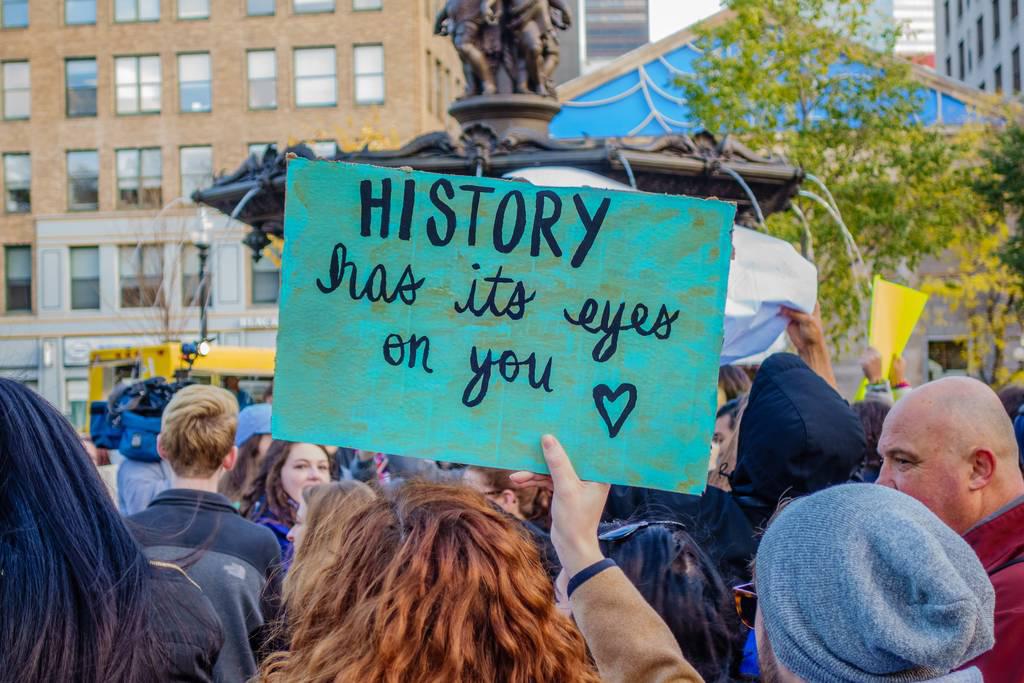 HISTORY
has its eyes
on you